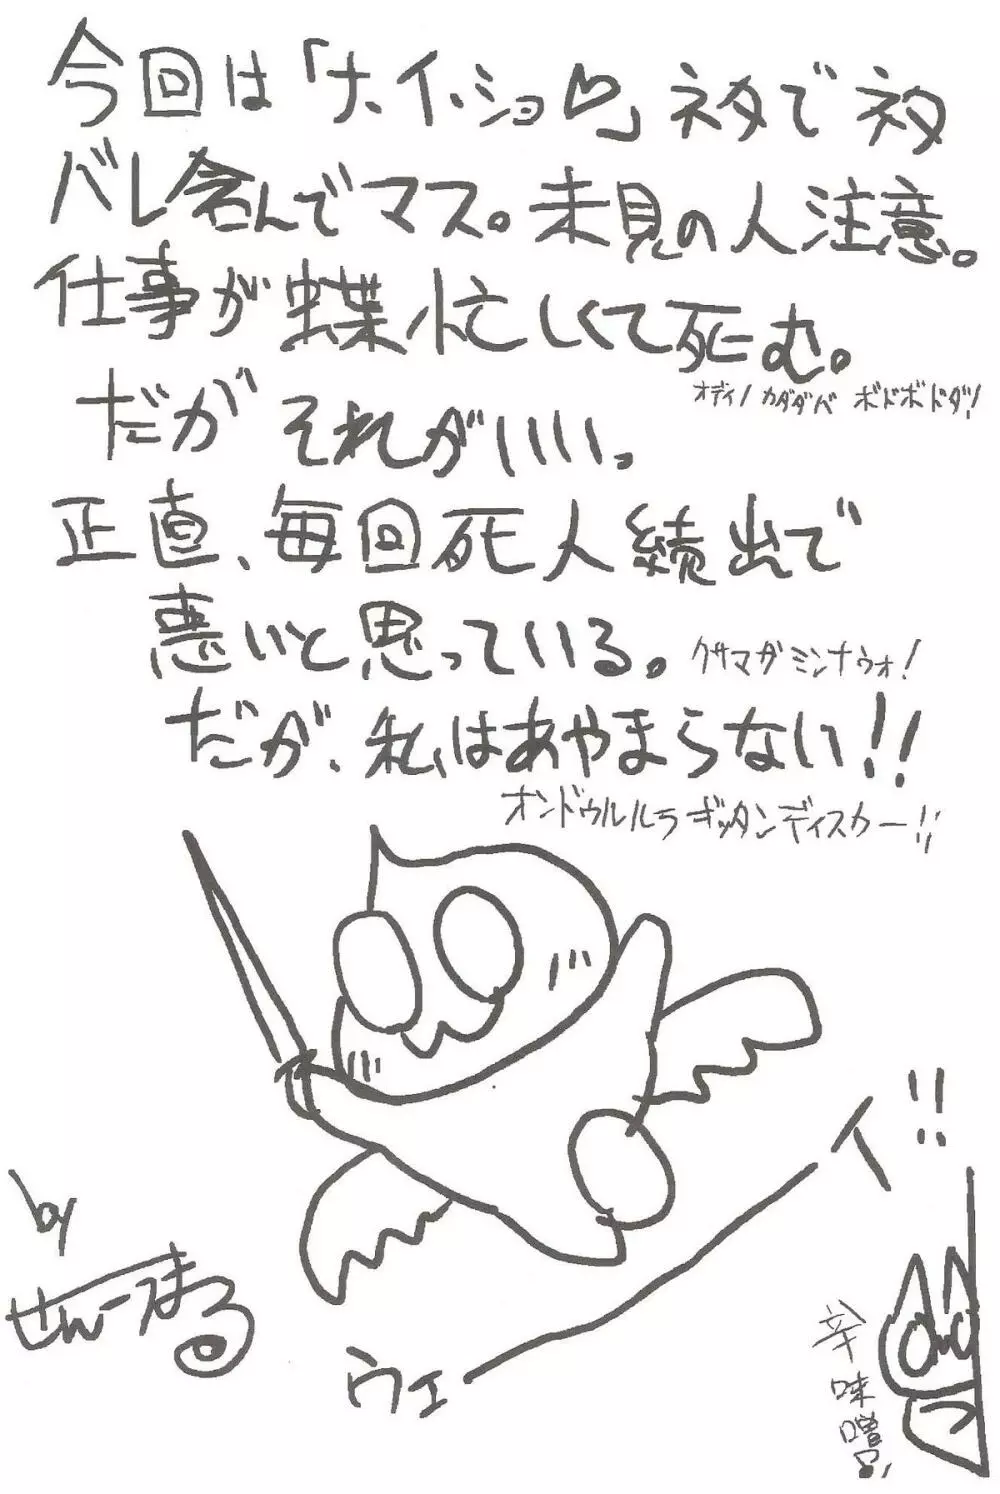 今回は「ナ、イ、ショ♡」ネタでネタ
バレ含んでマス。未見の人注意。
仕事が蝶忙しくて死む。
オディノ カダダベ ボドボドダ!
だがそれがいい。
正直、毎回死人続出で
悪いと思っている。
クサマガミンナウォ!
だが、私はあやまらない!!
オンドゥルルラギッタンディスカー!!
ウェーイ!!
by
せんーまる
辛味噌